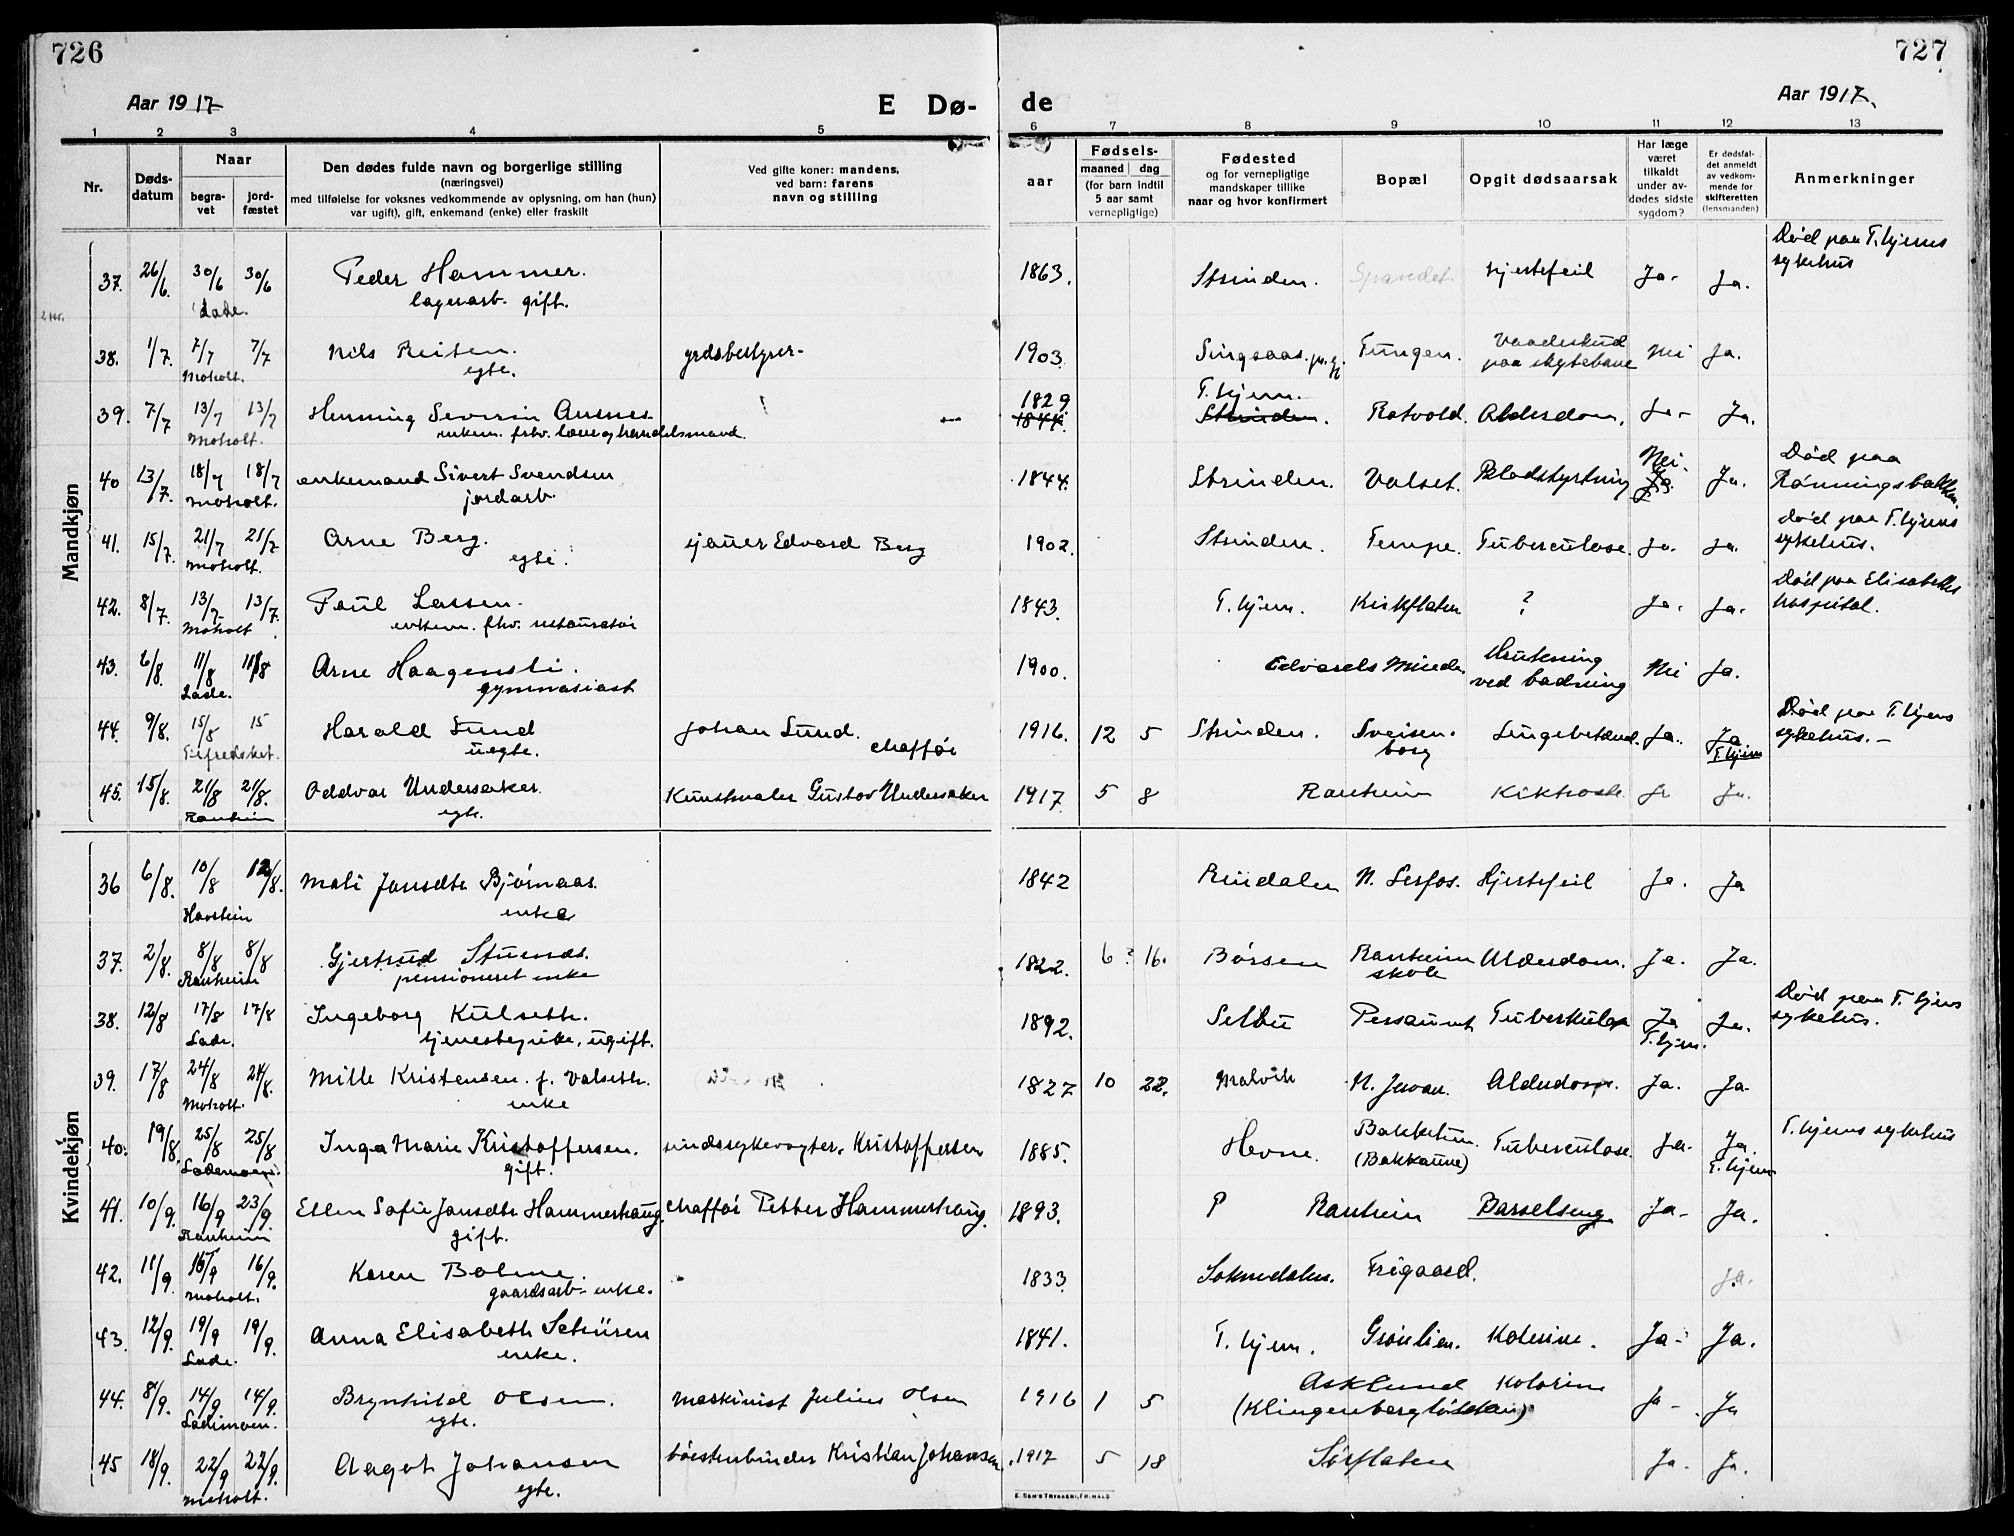 726
727
Aar 1917
E Dø-
de
Aar 1917.
1 2 3 4 5 6 7 8 9 10 11 12 13
Nr.
Døds-
datum
Naar
begra-
vet
jord-
fæstet
Den dødes fulde navn og borgerlige stilling
(næringsvei)
med tilføielse for voksnes vedkommende av oplysning, om han (hun)
var ugift), gift, enkemand (enke) eller fraskilt
Ved gifte koner: mandens,
ved barn: farens
navn og stilling
aar
Fødsels-
maaned dag
(for barn indtil
5 aar samt
vernepligtige)
Fødested
og for vernepligtige
mandskaper tillike
naar og hvor konfirmert
Bopæl
Opgit dødsaarsak
Har læge
været
tilkaldt
under av-
dødes sidste
sygdom?
Er dødsfal-
det anmeldt
av vedkom-
mende for
skifteretten
(lensmanden)
Anmerkninger
Mandkjøn
37. 26/6. 30/6 30/6 Peder Hammer. 1863. Strinden. Hjertefeil Ja. Ja. Død paa T.hjems
Lade. lagerarb. gift. sykehus
38. 1/7. 7/7 7/7 Nils Reiten. grdsbestyrer- 1903. Singsaas. Tungen. Vaadeskud Nei Ja.
Moholt. egte. paa skytebane
39. 7/7 13/7 13/7 Henning Severin Ausnes 1829 T.hjem. Rotvold Alderdom. Ja- Ja.
Moholt. enkem. fhv. 1844. Strinden.
40 13/7. 18/7 18/7 enkemand Sivert Svendsen 1844. Strinden. Valset. Nei. Ja. Ja. Død paa
Moholt. jordarb. Rønningsbakken
41. 15/7. 21/7 21/7 Arne Berg. sjauer Edvard Berg 1902. Strinden. Tempe. Tuberculose. Ja. Ja. Død paa T.hjems
Moholt. egte. sykehus.
42. 8/7. 13/7 13/7. Paul Larsen. 1843. T.hjem. Kirkflaten ? Ja. Ja. Død paa Elisabeths
Moholt enkem. fhv. restauratør hospital.
43. 6/8. 11/8 11/8 Arne Haagensli. 1900. Edvards Minde. Drukning Nei Ja.
Lade. gymnasiast ved badning
44. 9/8. 15/8 15 Harald Sund Johan Sund. 1916. 12 5 Strinden. Sveisen- Lungebetænd. Ja. Ja Død paa T.hjems
uegte. chaffør borg T.hjem sykehus.-
45. 15/8. 21/8 21/8. Oddvar Undersaker. Kunstmaler Gustav Undersaker 1917. 5 8 Ranheim Kikhoste. Ja Ja.
Ranheim egte.
Kvindekjøn
36 6/8. 10/8 12/8. Mali Jonsdtr Bjørnaas. 1842 Rindalen N. Lerfos. Hjertefeil Ja. Ja
Havstein enke
37. 2/8. 8/8 8/8 Gjertrud 1822. 6 ? 16. Børsen Ranheim Alderdom. Ja. Ja.
Ranheim pensioneret enke skole
38. 12/8 17/8 17/8 Ingeborg Kulseth. 1892. Selbu Persaunet Tuberkulose Ja Ja. Død paa T.hjems
Lade. tjenestepike, ugift. T.hjem. sykehus.
39. 17/8 24/8 24/8. Mille Kristensen. f. Valseth. 1827 10 22. Malvik N. Alderdom. Ja. Ja.
Moholt. enke
40. 19/8. 25/8 25/8 Inga Marie Kristoffersen. sindssykevogter. Kristoffersen 1885. Hevne. Bakketun. Tuberculose. Ja. Ja. T.hjems sykehus
Lademoen. gift. (Bakkaune) T.hjem
41. 10/9. 16/9 23/9. Ellen Sofie Jonsdtr Hammerhaug. chaffør Petter Hammerhaug. 1893. ? Ranheim Barselseng. Ja- Ja.
Ranheim gift.
42. 11/9. 16/9 16/9. Karen Bolme. 1833. Soknedalen. Frigaard. Ja.
Moholt. gaardsarb. enke.
43. 12/9. 19/9 19/9. Anna Elisabeth Schüren 1841. T.hjem. Grønlien. Ja- Ja.
Lade. enke.
44. 8/9. 14/9 14/9. Brynhild Olsen. maskinist Julius Olsen 1916 1 5 Asklund Ja- Ja
Lademoen. egte. (Klingenbergløkken)
45 18/9. 22/9 22/9. Aagot Johansen børstenbinder Kristian Johansen 1917 5 18 Sørflaten Ja- Ja.
Moholt. egte.
E. SEM'S TRYKKERI, FR.HALD